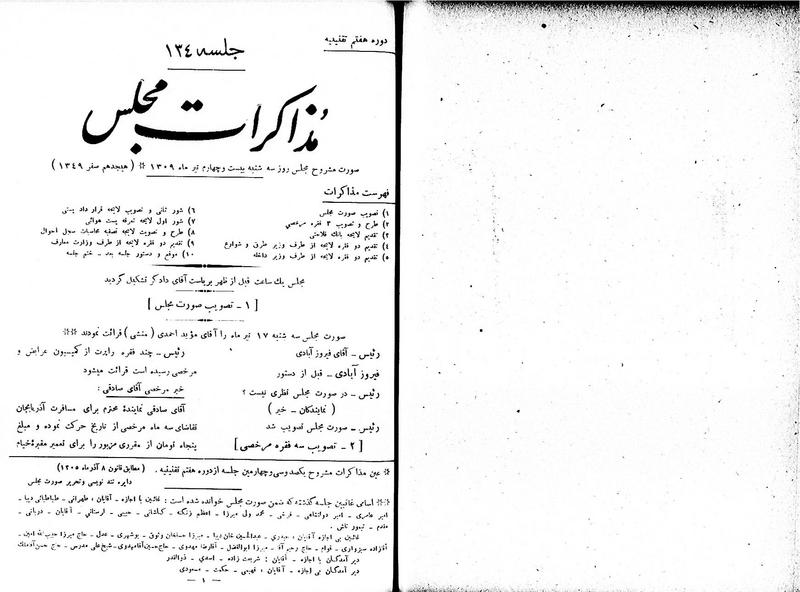 دوره هفتم تقنینیه
جلسه ۱۳۴
مذاکرات مجلس
صورت مشروح مجلس روز سه شنبه بیست و چهارم تیر ماه ۱۳۰۹ * ( هیجدهم صفر ۱۳۴۹ )
فهرست مذاکرات
۱) تصویب صورت مجلس
۲) طرح و تصویب ۳ فقره مرخصی
۳) تقدیم لایحه بانک فلاحتی
۴) تقدیم دو فقره لایحه از طرف وزیر طرق و شوارع
۵) تقدیم دو فقره لایحه از طرف وزیر داخله
۶) شور ثانی و تصویب لایحه قرار داد پستی
۷) شور اول لایحه تعرفه پست هوائی
۸) طرح و تصویت لایحه تصفیه محاسبات سجل احوال
۹) تقدیم دو فقره لایحه از طرف وزارت معارف
۱۰) موقع و دستور جلسه بعد ـ ختم جلسه
مجلس یک ساعت قبل از ظهر بریاست آقای دادگر تشکیل گردید
[ ۱ ـ تصویب صورت مجلس ]
صورت مجلس سه شنبه ۱۷ تیر ماه را آقای مؤید احمدی ( منشی ) قرائت نمودند **
رئیس ـ آقای فیروز آبادی
فیروز آبادی ـ قبل از دستور
رئیس ـ در صورت مجلس نظری نیست ؟
( نمایندگان ـ خیر )
رئیس ـ صورت مجلس تصویب شد
[ ۲ ـ تصویب سه فقره مرخصی ]
رئیس ـ چند فقره راپرت از کمیسیون عرایض و
مرخصی رسیده است قرائت میشود
خبر مرخصی آقای صادقی :
آقای صادقی نمایندهٔ محترم برای مسافرت آذربایجان
تقاضای سه ماه مرخصی از تاریخ حرکت نموده و مبلغ
پنجاه تومان از مقرری مزبور را برای تعمیر مقبرهٔ خیام
* عین مذاکرات مشروح یکصد وسی وچهارمین جلسه از دوره هفتم تقنینیه . ( مطابق قانون ۸ آذر ماه ۱۳۰۵ )
دایره تند نویسی و تحریر صورت مجلس
** اسامی غائبین جلسه گذشته که ضمن صورت مجلس خوانده شده است : غائبین با اجازه ـ آقایان : طهرانی ـ طباطبائی دیبا ـ
امیر عامری ـ امیر دولتشاهی ـ فرشی ـ محمد ولی میرزا ـ اعظم زنگنه ـ کاشانی ـ حبیبی ـ لرستانی ـ آقایان ـ دربانی ـ
مقدم ـ تیمور تاش .
غائبین بی اجازه آقایان : حیدری ـ عبدالحسین خان دیبا ـ میرزا حسنخان وثوق ـ بوشهری ـ عدل ـ حاج میرزا حبیب الله امین ـ
آقازاده سبزواری ـ قوام ـ حاج رحیم آقا ـ میرزا ابوالفضل ـ آقارضا مهدوی ـ حاج حسین آقا مهدوی ـ شیخ علی مدرس ـ حاج حسن آقا ملک
دیر آمدگان با اجازه ـ آقایان : شریعت زاده ـ اسدی ـ ذوالقدر
دیر آمدگان بی اجازه ـ آقایان : فهیمی ـ حکمت ـ مسعودی
ـ ۱ ـ